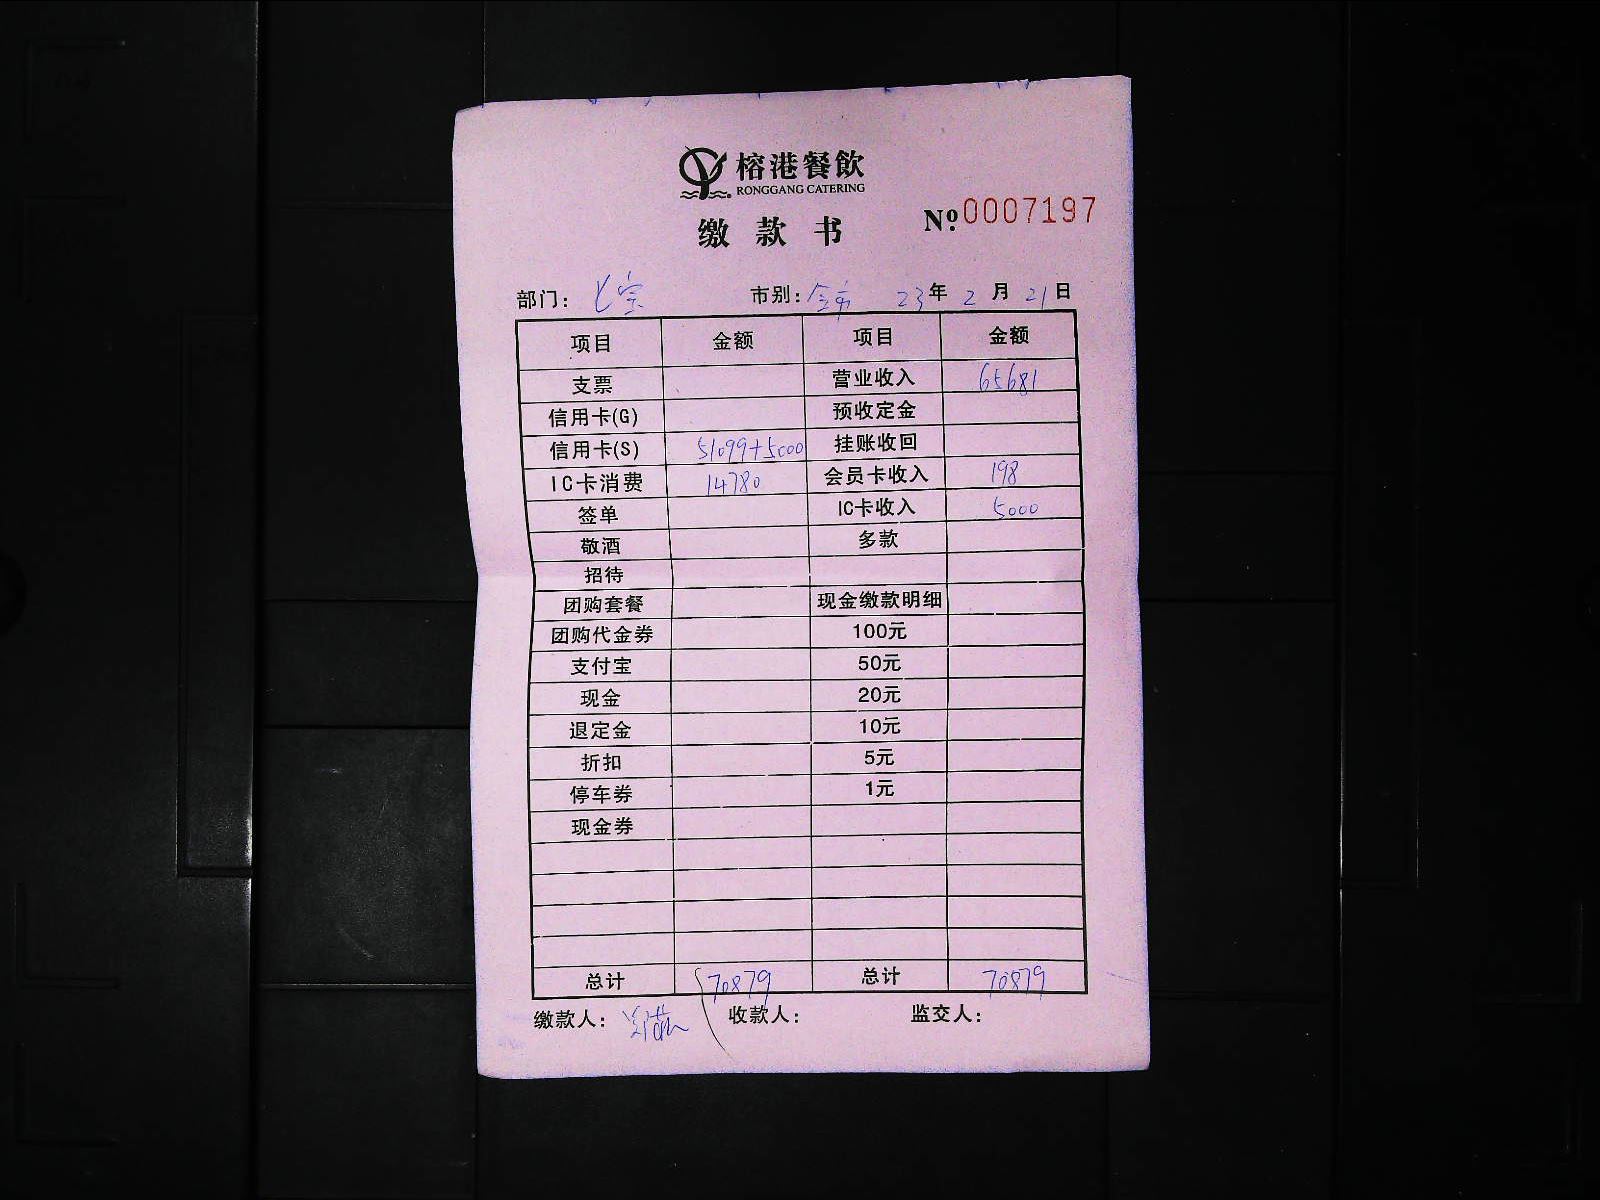 榕港餐飲
RONGGANG CATERING
缴款书 Nº 0007197
部门: 七宝 市别: 全市 23年 2月 21日
项目 金额 项目 金额
支票 营业收入 65681
信用卡(G) 预收定金
信用卡(S) 51099+5000 挂账收回
IC卡消费 14780 会员卡收入 198
签单 IC卡收入 5000
敬酒 多款
招待
团购套餐 现金缴款明细
团购代金券 100元
支付宝 50元
现金 20元
退定金 10元
折扣 5元
停车券 1元
现金券
总计 70879 总计 70879
缴款人: 收款人: 监交人: